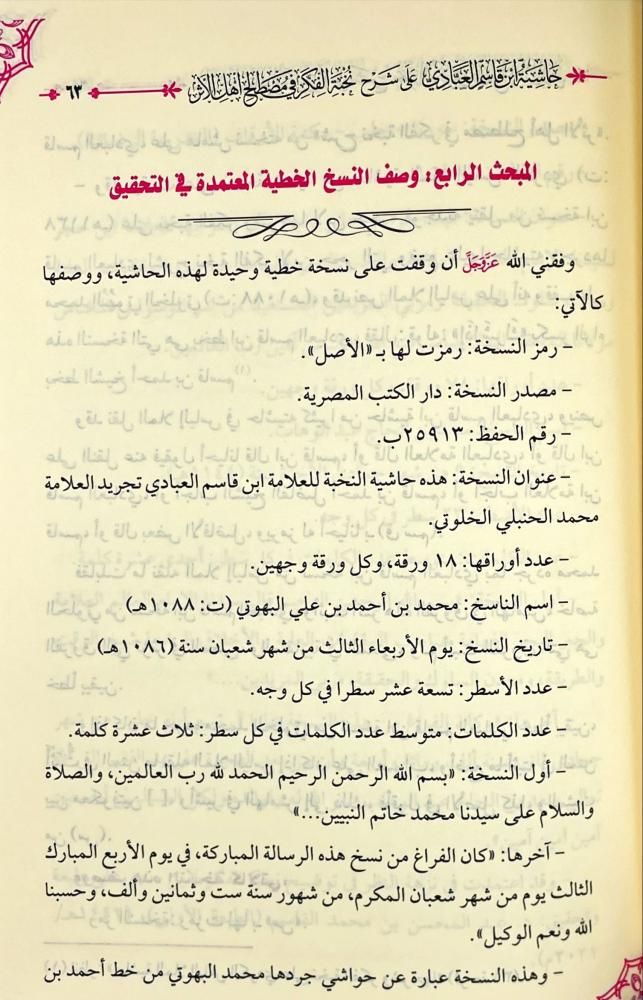 حاشية ابن قاسم العبادي على شرح نخبة الفكر في مصطلح أهل الأثر
٦٣
المبحث الرابع: وصف النسخ الخطية المعتمدة في التحقيق
وفقني الله عَزَّوَجَلَّ أن وقفت على نسخة خطية وحيدة لهذه الحاشية، ووصفها
كالآتي:
– رمز النسخة: رمزت لها بـ «الأصل».
– مصدر النسخة: دار الكتب المصرية.
– رقم الحفظ: ٢٥٩١٣ب.
– عنوان النسخة: هذه حاشية النخبة للعلامة ابن قاسم العبادي تجريد العلامة
محمد الحنبلي الخلوتي.
– عدد أوراقها: ١٨ ورقة، وكل ورقة وجهين.
– اسم الناسخ: محمد بن أحمد بن علي البهوتي (ت: ١٠٨٨هـ)
– تاريخ النسخ: يوم الأربعاء الثالث من شهر شعبان سنة (١٠٨٦هـ)
– عدد الأسطر: تسعة عشر سطرا في كل وجه.
– عدد الكلمات: متوسط عدد الكلمات في كل سطر: ثلاث عشرة كلمة.
– أول النسخة: «بسم الله الرحمن الرحيم الحمد لله رب العالمين، والصلاة
والسلام على سيدنا محمد خاتم النبيين...»
– آخرها: «كان الفراغ من نسخ هذه الرسالة المباركة، في يوم الأربع المبارك
الثالث يوم من شهر شعبان المكرم، من شهور سنة ست وثمانين وألف، وحسبنا
الله ونعم الوكيل».
– وهذه النسخة عبارة عن حواشي جردها محمد البهوتي من خط أحمد بن